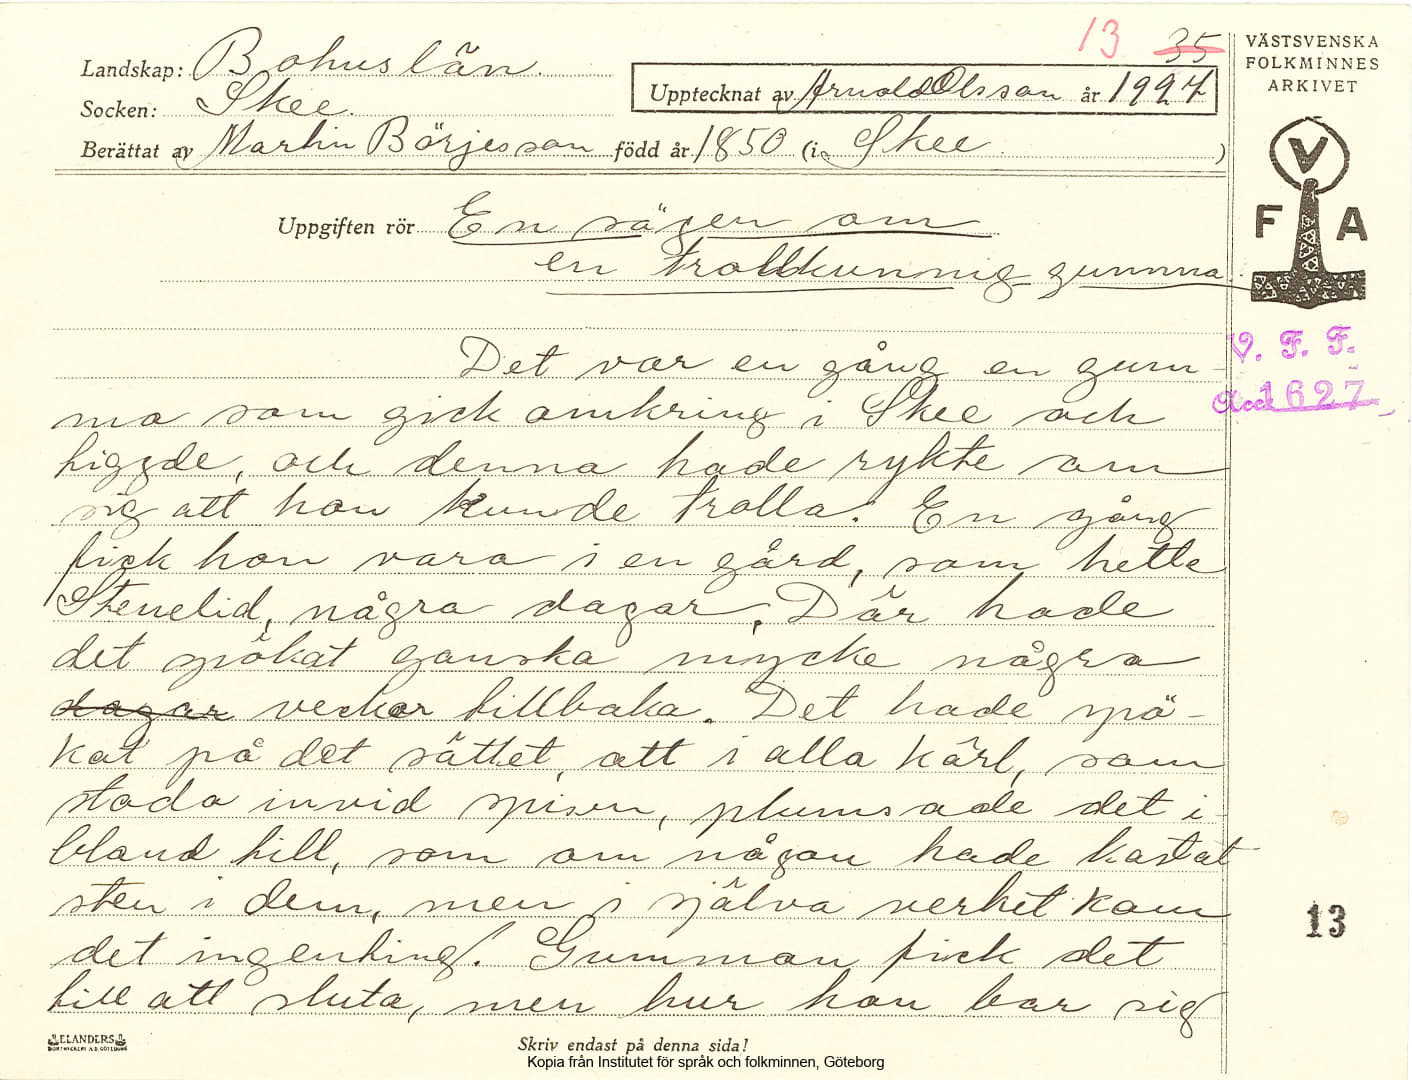 13 35
VÄSTSVENSKA
FOLKMINNES
ARKIVET
Landskap: Bohuslän.
Upptecknat av Arnold Olsson år 1927
Socken: Skee.
Berättat av Martin Börjesson född år 1850 (i Skee )
V
F A
Uppgiften rör En sägen om
en trollkunnig gumma.
V. F. F.
Acc 1627
Det var en gång en gum-
ma som gick omkring i Skee och
tiggde, och denna hade rykte om
sig att hon kunde trolla. En gång
fick hon vara i en gård, som hette
Stenelid, några dagar. Där hade
det spökat ganska mycke några
dagar veckor tillbaka. Det hade spö-
kat på det sättet, att i alla kärl, som
stodo invid spisen, plumsade det i-
bland till, som om någon hade kastat
sten i dem, men i själva verket kom
det ingenting. Gumman fick det
till att sluta, men hur hon bar sig
13
ELANDERS
BOKTRYCKERI A.B. GÖTEBORG
Skriv endast på denna sida!
Kopia från Institutet för språk och folkminnen, Göteborg